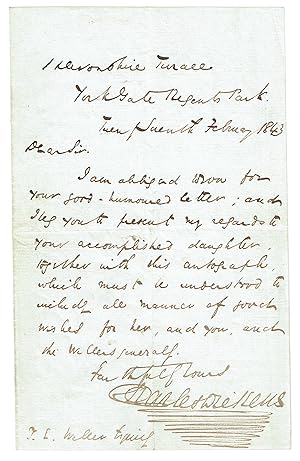 1 Devonshire Terrace
York Gate Regents Park.
Twenty Seventh February 1843
Dear Sir.
I am obliged to you for
your good-humoured letter; and
I beg you to present my regards to
your accomplished daughter,
together with this autograph,
which must be understood to
include all manner of good
wishes for her, and you, and
the Wellers general.
Faithfully Yours
Charles Dickens
T. E. Weller Esquire